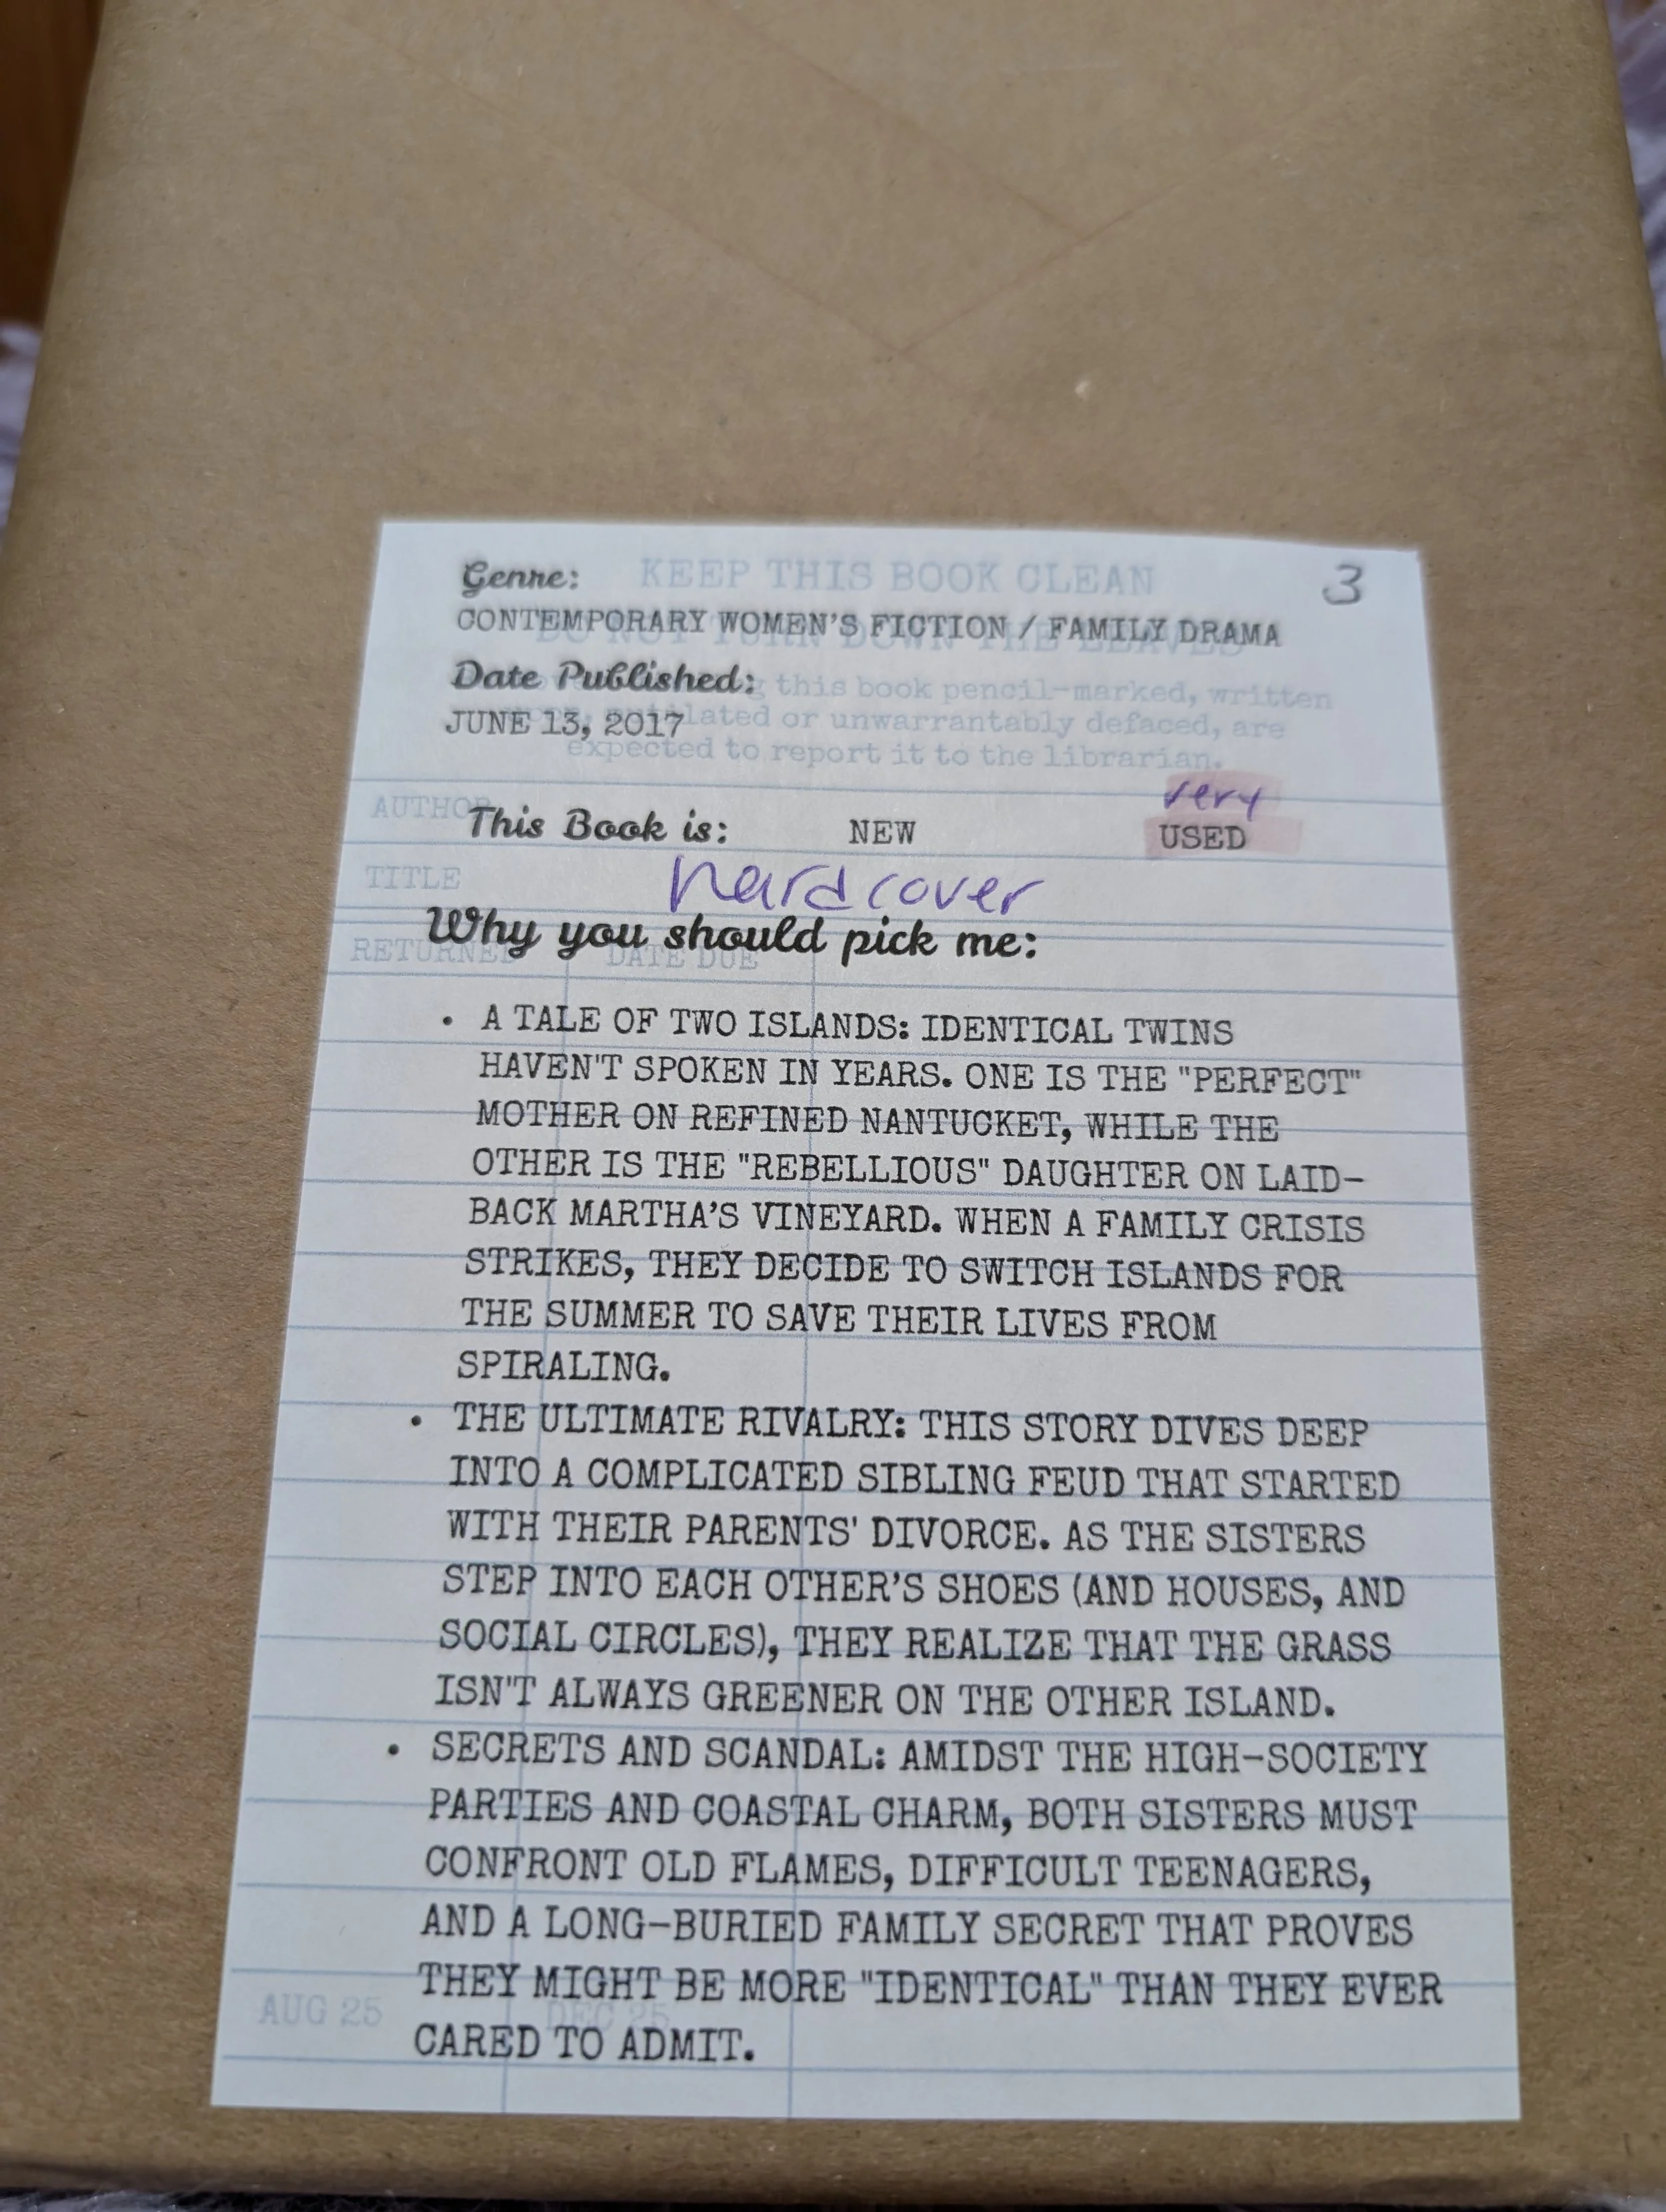 KEEP THIS BOOK CLEAN
3
Genre:
CONTEMPORARY WOMEN'S FICTION / FAMILY DRAMA
DO NOT TURN DOWN THE LEAVES
Date Published:
this book pencil-marked, written
JUNE 13, 2017
or unwarrantably defaced, are
expected to report it to the librarian.
very
AUTHOR
This Book is: NEW USED
TITLE
hardcover
Why you should pick me:
RETURNED DATE DUE
• A TALE OF TWO ISLANDS: IDENTICAL TWINS
HAVEN'T SPOKEN IN YEARS. ONE IS THE "PERFECT"
MOTHER ON REFINED NANTUCKET, WHILE THE
OTHER IS THE "REBELLIOUS" DAUGHTER ON LAID-
BACK MARTHA'S VINEYARD. WHEN A FAMILY CRISIS
STRIKES, THEY DECIDE TO SWITCH ISLANDS FOR
THE SUMMER TO SAVE THEIR LIVES FROM
SPIRALING.
• THE ULTIMATE RIVALRY: THIS STORY DIVES DEEP
INTO A COMPLICATED SIBLING FEUD THAT STARTED
WITH THEIR PARENTS' DIVORCE. AS THE SISTERS
STEP INTO EACH OTHER'S SHOES (AND HOUSES, AND
SOCIAL CIRCLES), THEY REALIZE THAT THE GRASS
ISN'T ALWAYS GREENER ON THE OTHER ISLAND.
• SECRETS AND SCANDAL: AMIDST THE HIGH-SOCIETY
PARTIES AND COASTAL CHARM, BOTH SISTERS MUST
CONFRONT OLD FLAMES, DIFFICULT TEENAGERS,
AND A LONG-BURIED FAMILY SECRET THAT PROVES
THEY MIGHT BE MORE "IDENTICAL" THAN THEY EVER
CARED TO ADMIT.
AUG 25 DEC 25